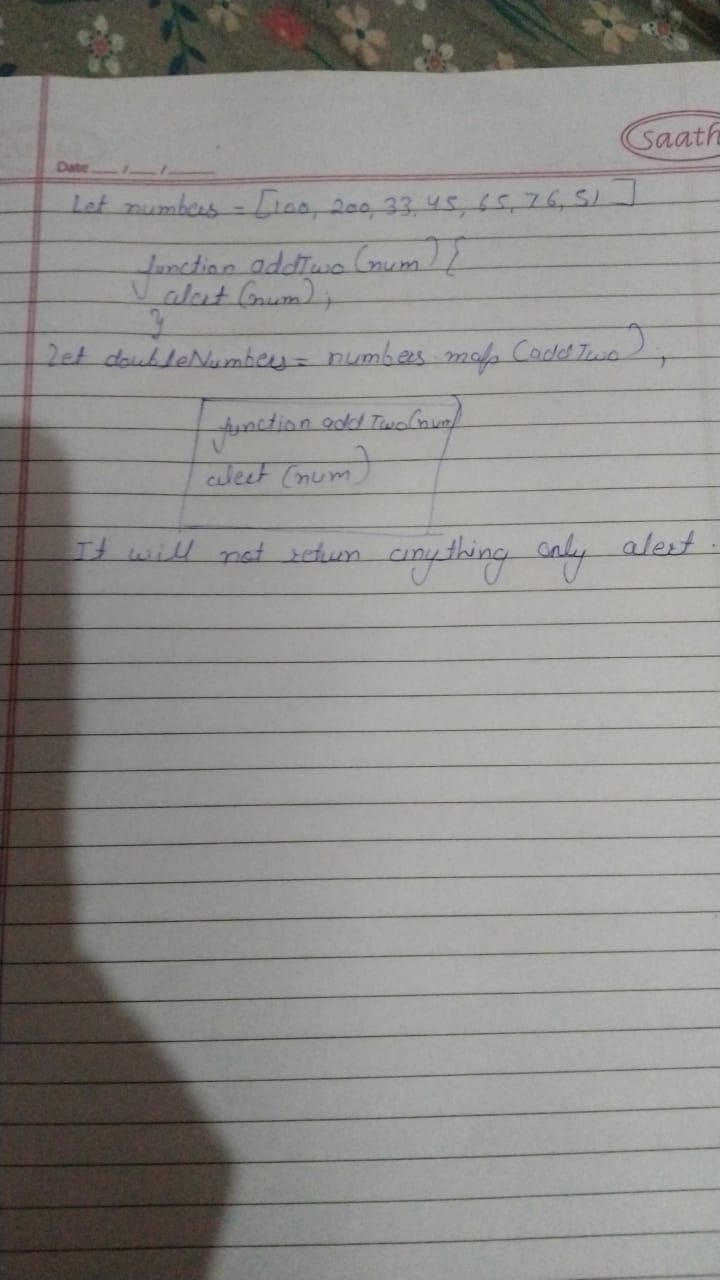 saath
Date __/__/____
Let numbers = [100, 200, 33, 45, 65, 76, 51]
function addTwo (num) {
alert (num);
}
let doubleNumbers = numbers.map (addTwo);
function addTwo(num)
alert (num)
It will not return anything only alert.